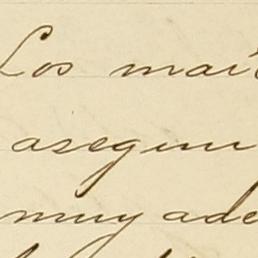 Los mai
asegun
muy ade